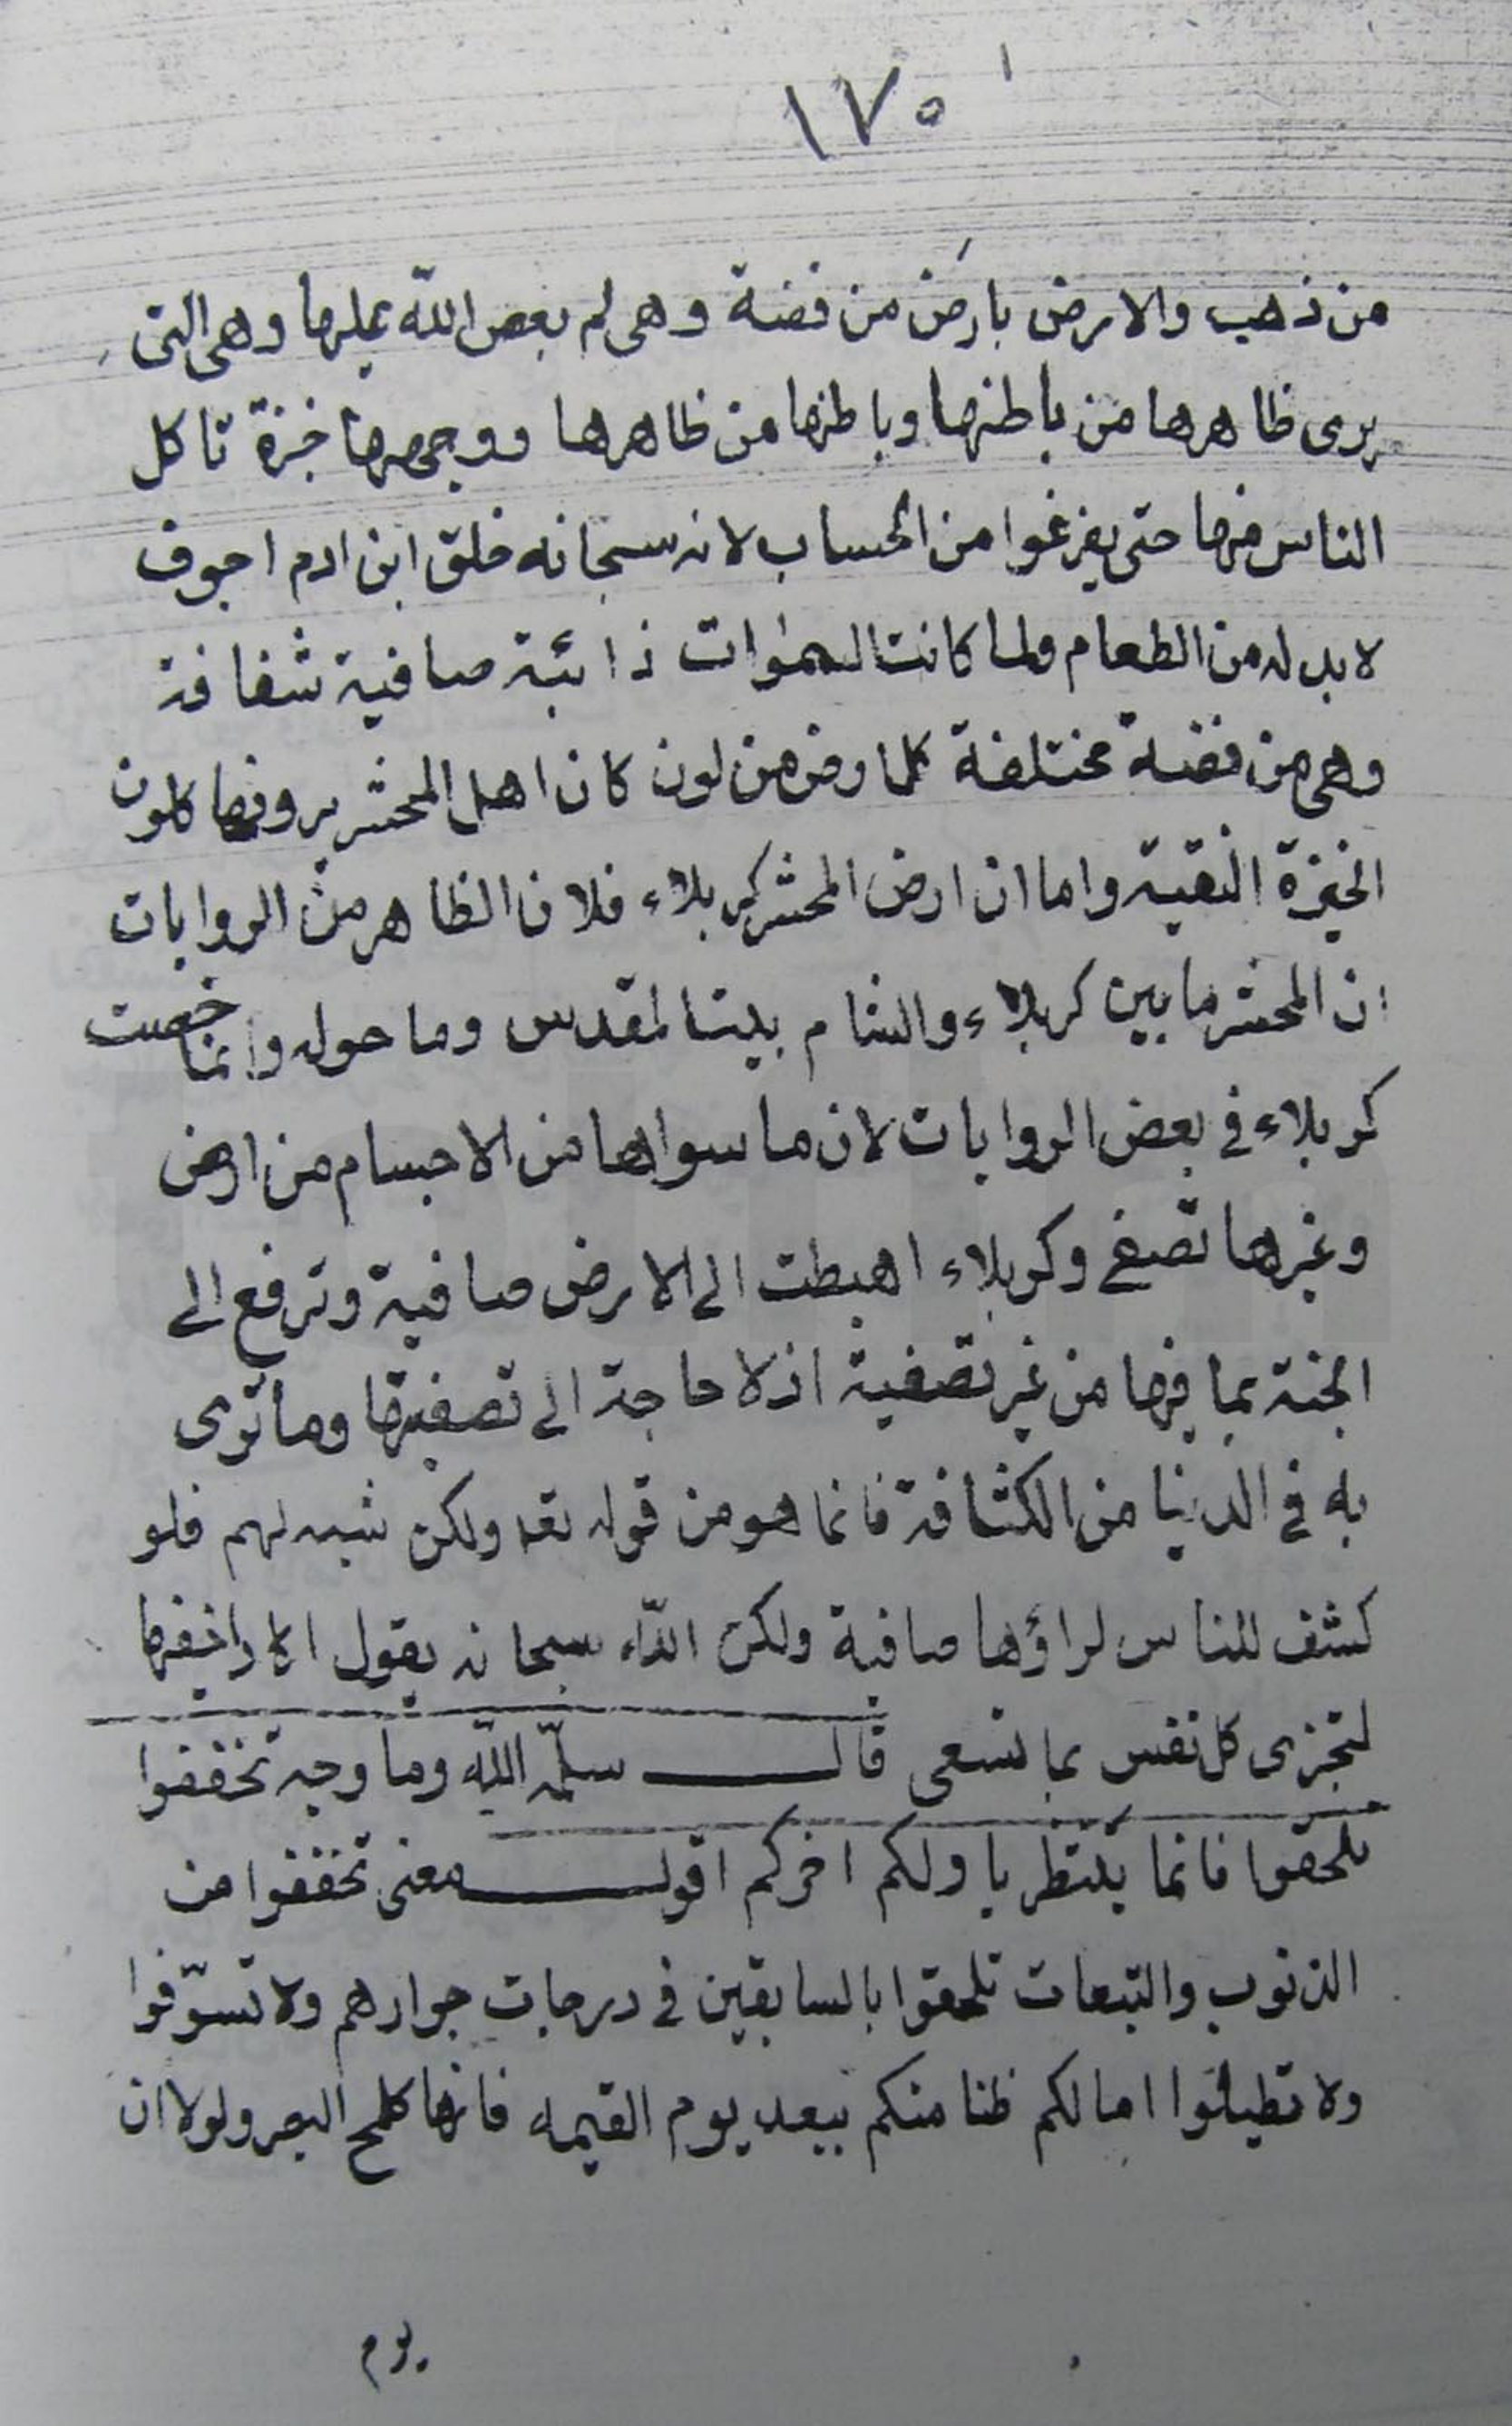 ١٧٥
من ذهب والارض بارض من فضة وهى لم يعص الله عليها وهى التى
يرى ظاهرها من باطنها وباطنها من ظاهرها ووجهها خبزة تاكل
الناس منها حتى يفرغوا من الحساب لانه سبحانه خلق ابن ادم اجوف
لا بد له من الطعام ولما كانت السموات ذائبة صافية شفافة
وهى من فضة مختلفة كل ارض من لون كان اهل المحشر يرونها كلون
الخبزة النقية واما ان ارض المحشر كربلاء فلان الظاهر من الروايات
ان المحشر ما بين كربلاء والشام بيت المقدس وما حوله وانما خصت
كربلاء فى بعض الروايات لان ما سواها من الاجسام من ارض
وغيرها تصفى وكربلاء اهبطت الى الارض صافية وترفع الى
الجنة بما فيها من غير تصفية اذ لا حاجة الى تصفيتها وما ترى
به فى الدنيا من الكثافة فانما هو من قوله تعه ولكن شبه لهم فلو
كشف للناس لراؤها صافية ولكن الله سبحانه يقول اكاد اخفيها
لتجزى كل نفس بما تسعى قال سلمه الله وما وجه تخففوا
تلحقوا فانما ينتظر باولكم اخركم اقول معنى تخففوا من
الذنوب والتبعات تلحقوا بالسابقين فى درجات جوارهم ولا تسوّفوا
ولا تطيلوا امالكم ظنا منكم ببعد يوم القيمه فانها كلمح البصر ولولا ان
يوم